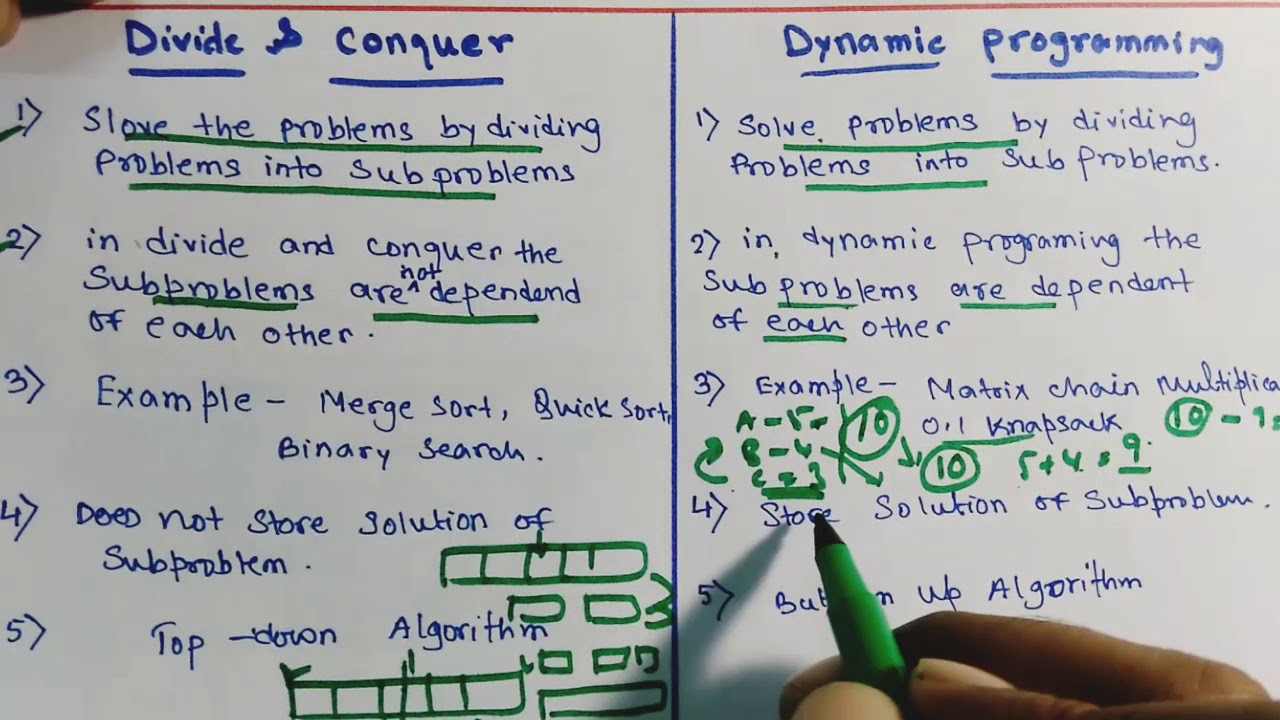 Divide & Conquer
1) Slove the problems by dividing
Problems into Subproblems
2) in divide and conquer the
not
Subproblems are ^ dependend
of each other.
3) Example - Merge sort, Quick sort,
Binary search.
4) Does not store solution of
Subproblem.
5) Top-down Algorithm
Dynamic programming
1) Solve problems by dividing
Problems into Sub problems.
2) in dynamic programing the
Sub problems are dependent
of each other
3) Example - Matrix chain multiplica
0.1 Knapsack
10 - 9
A - 5 -
10
B - 4
C = 3
10
5 + 4 = 9
4) Store Solution of Subproblem.
5) up Algorithm